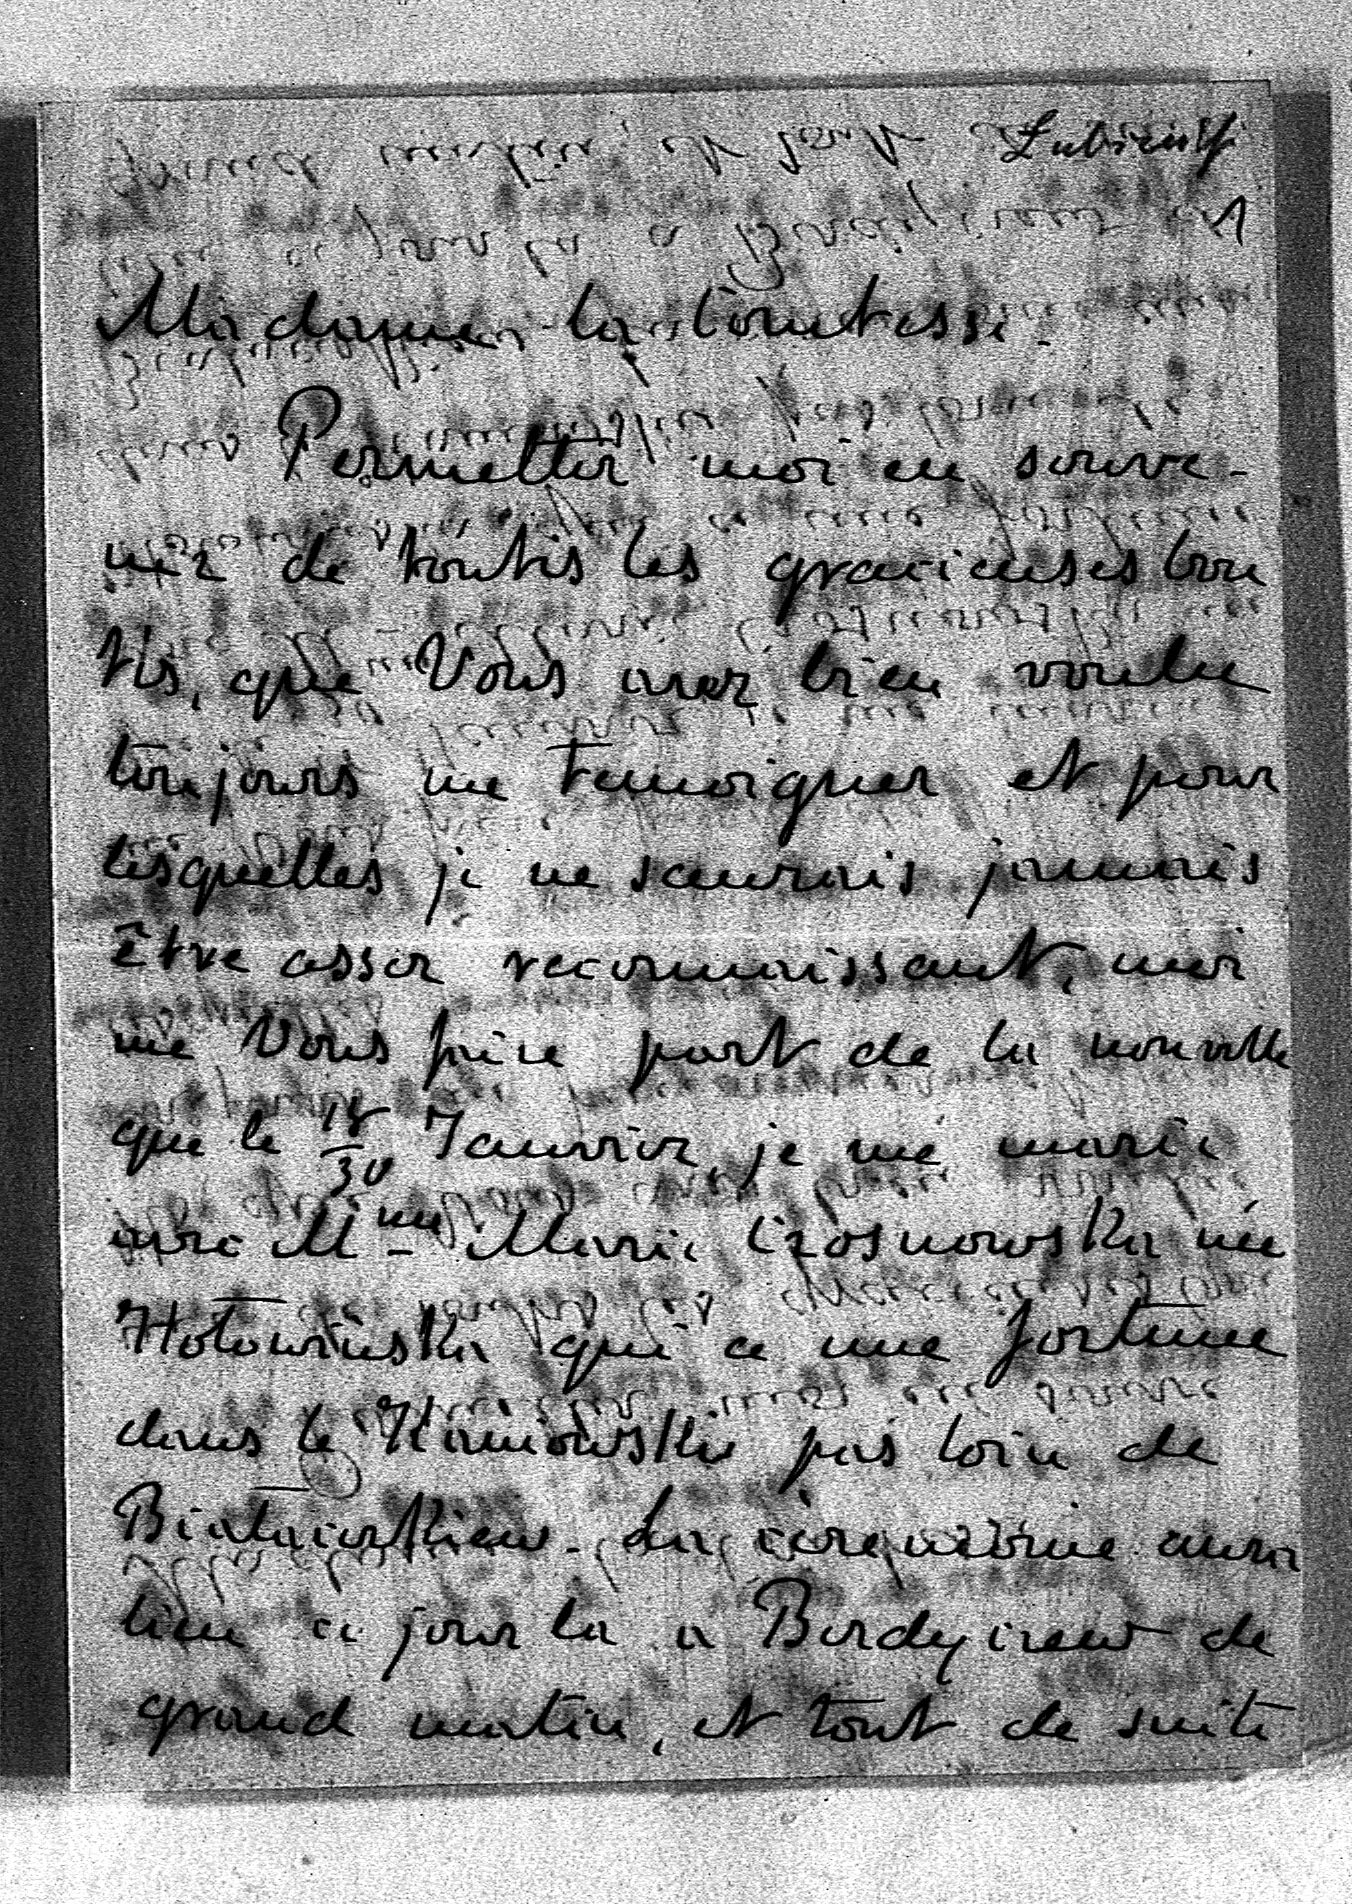 1
Madame la Comtesse.
Permettez moi en souve-
nez de toutes les gracieuses bon
tés, que Vous avez bien voulu
toujours me temoigner et pour
lesquelles je ne saurais jamais
être assez reconnaissant,
me Vous faire part de la nouvelle
que le 18/30 Janvier, je me marie
avec Mme Marie Czosnowska née
Hołowińska qui a une fortune
dans le Kaniowski pas loin de
Białacerkiew. La ceremonie aura
lieu ce jour la a Berdyczew de
grand matin, et tout de suite